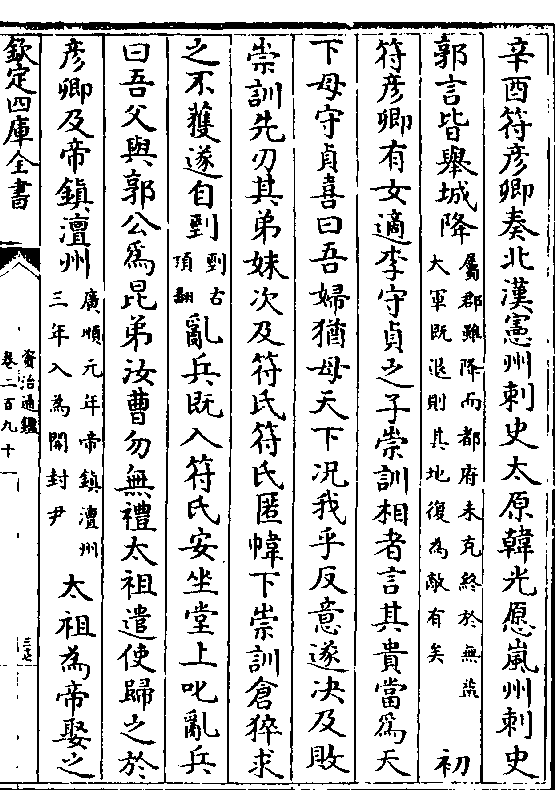 辛酉符彥卿奏北漢憲州刺史太原韓光愿嵐州刺史
郭言皆舉城降屬郡雖降而都府未克終於無益大軍既退則其地復為敵有矣 初
符彥卿有女適李守貞之子崇訓相者言其貴當為天
下母守貞喜曰吾婦猶母天下况我乎反意遂决及敗
崇訓先刃其弟妹次及符氏符氏匿幃下崇訓倉猝求
之不獲遂自剄剄古頂翻亂兵既入符氏安坐堂上叱亂兵
曰吾父與郭公為昆弟汝曹勿無禮太祖遣使歸之於
彥卿及帝鎮澶州廣順元年帝鎮澶州三年入為開封尹 太祖為帝娶之
欽定四庫全書
資治通鑑
卷二百九十一
三七